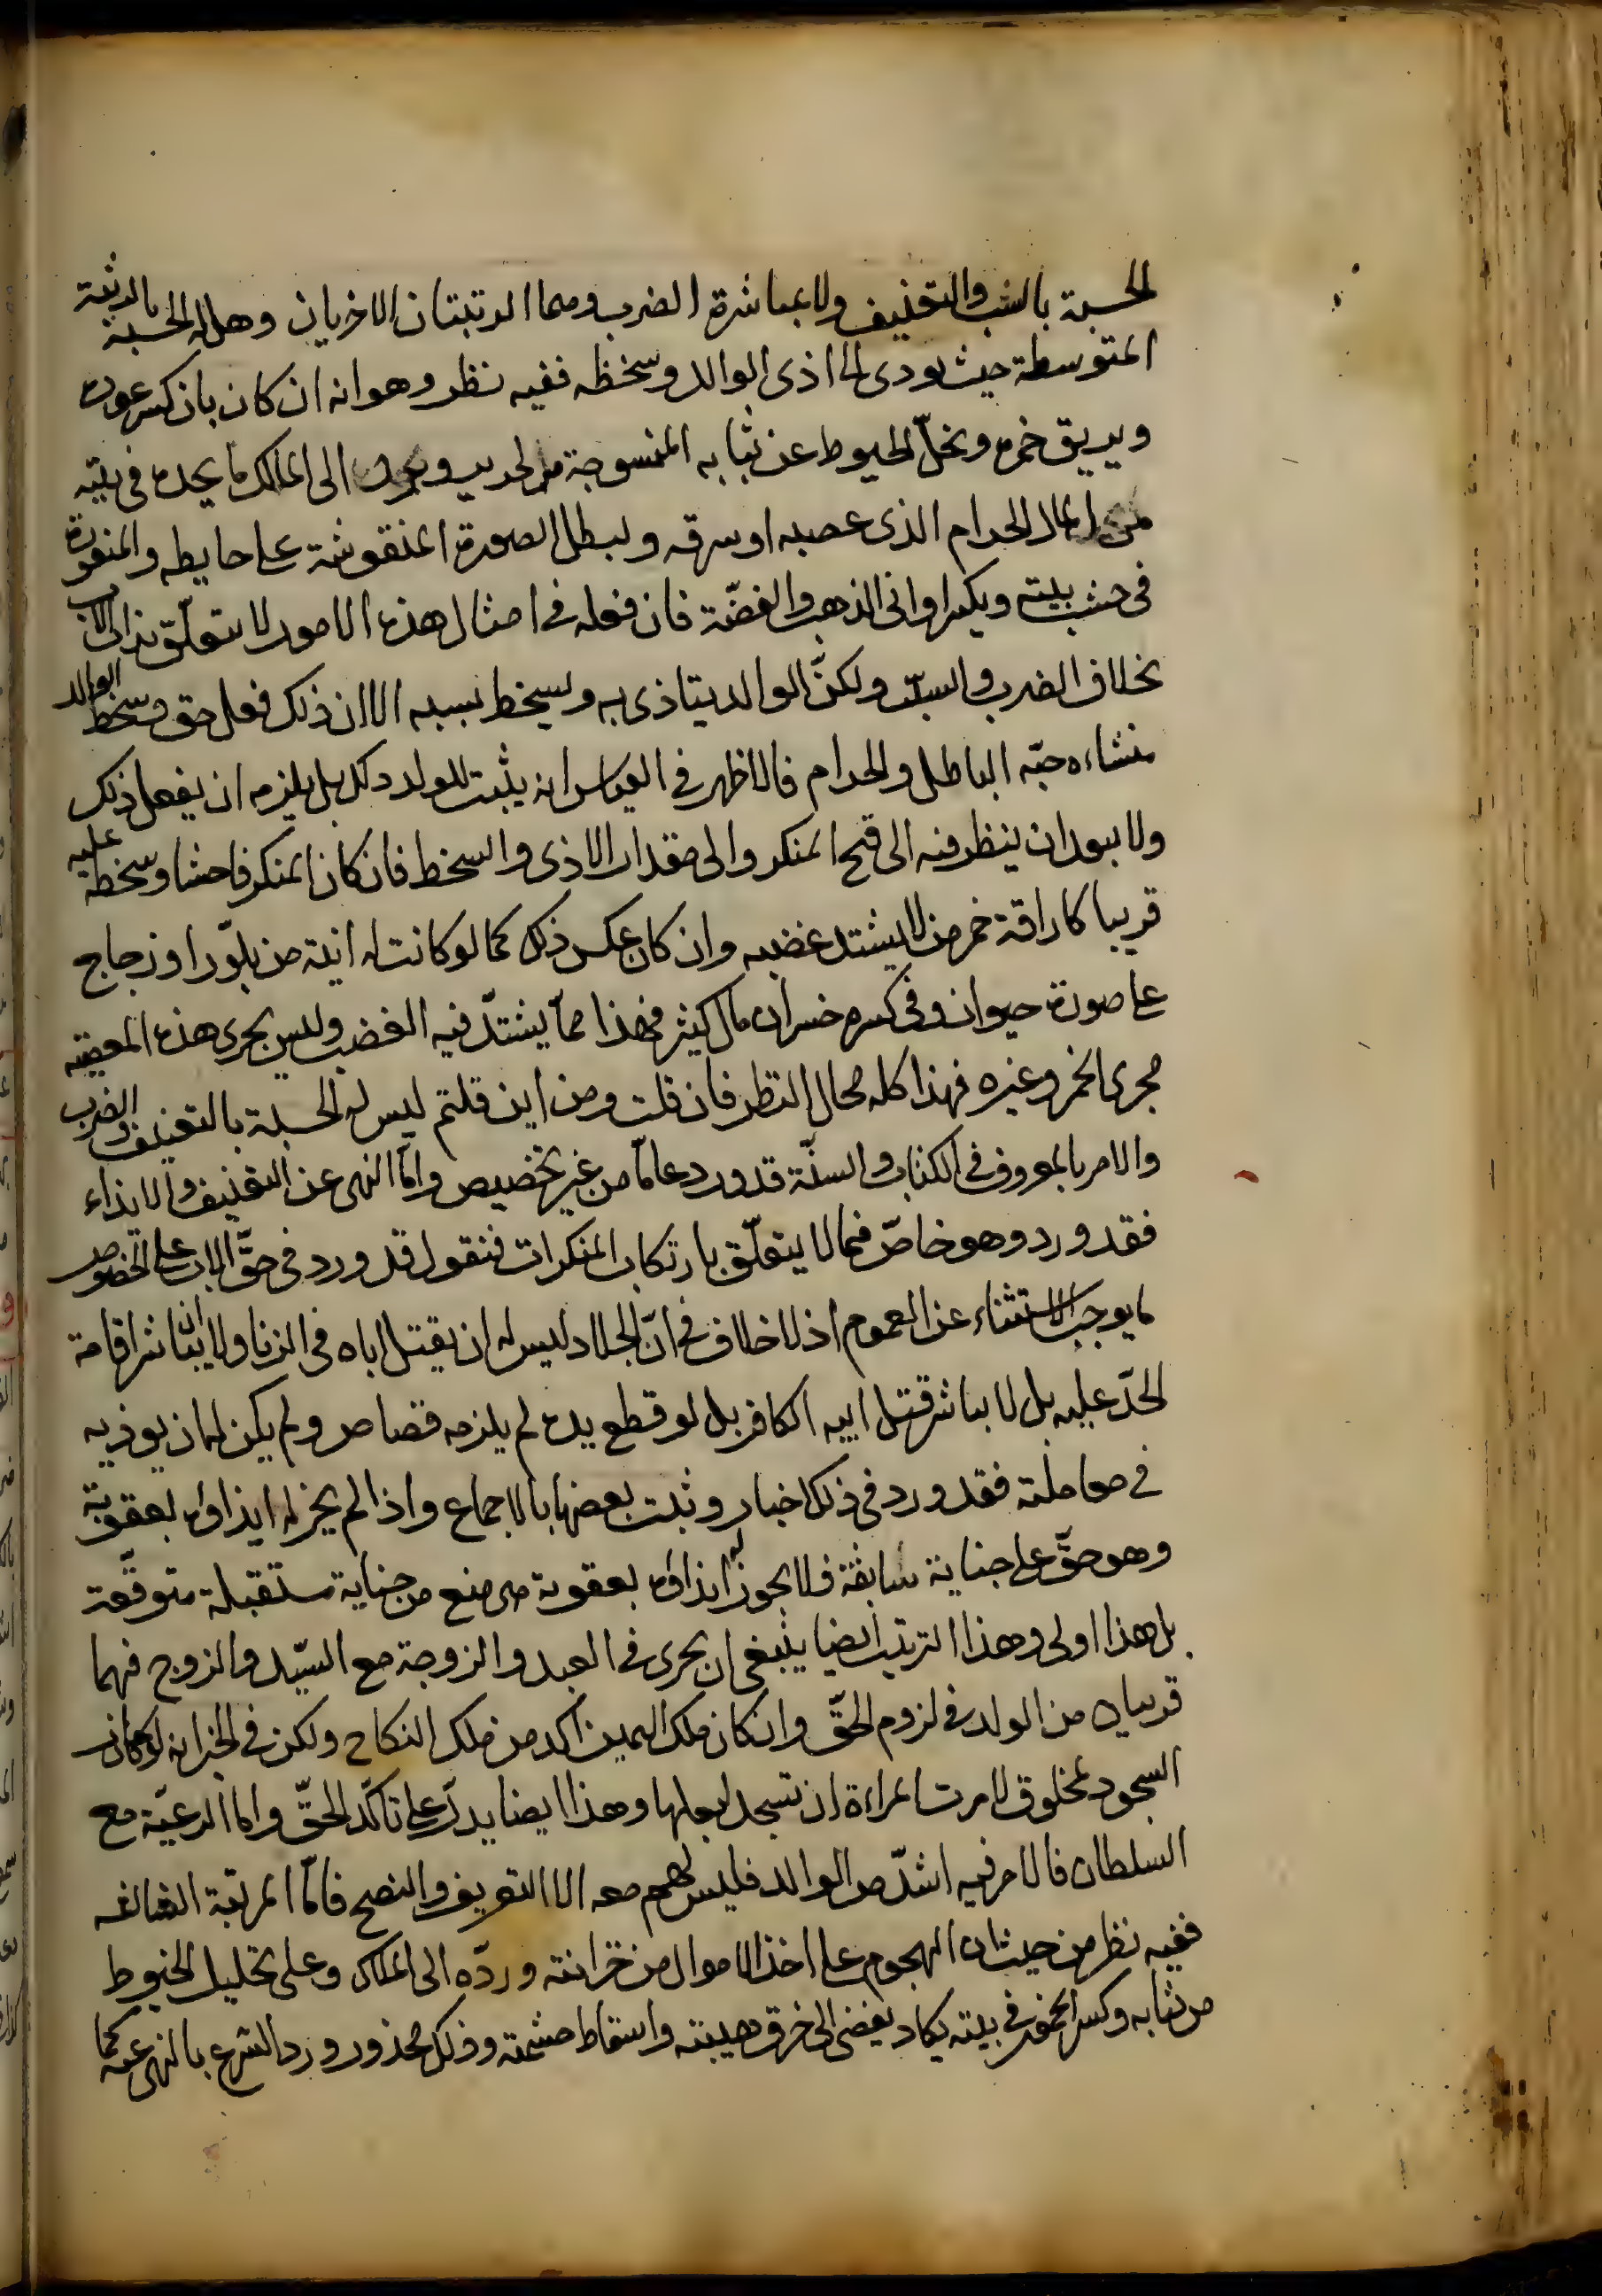 الحسبة بالسب والتعنيف ولا بمباشرة الضرب وهما الرتبتان الاخريان وهل له الحسبة بالرتبة
المتوسطة حيث يودى الى اذى الوالد وسخطه ففيه نظر وهو انه ان كان بان كسر عوده
ويريق خمره ويحل الخيوط عن ثيابه المنسوجة من الحرير ويرد الى الملاك ما يجده في بيته
من المال الحرام الذى غصبه او سرقه ويبطل الصورة المنقوشة على حايطه والمنقورة
فى خشب بيته ويكسر اوانى الذهب والفضّة فان فعله فى امثال هذه الامور لا يتعلّق بذات الاب
بخلاف الضرب والسبّ ولكنّ الوالد يتاذى به ويسخط بسببه الا ان ذلك فعل حق وسخط الوالد
منشاءه حبّه الباطل والحرام فالاظهر فى القياس انه يثبت للولد ذلك بل يلزمه ان يفعل ذلك
ولا يبعد ان ينظر فيه الى قبح المنكر والى مقدار الاذى والسخط فان كان المنكر فاحشا وسخطه عليه
قريبا كاراقة خمر من لا يشتد غضبه وان كان عكس ذلك كما لو كانت له انية من بلّور او زجاج
على صورة حيوان وفى كسره خسران مال كثير فهذا ممّا يشتدّ فيه الغضب وليس يجرى هذه المعصية
مجرى الخمر وغيره فهذا كله مجال النظر فان قلت ومن اين قلتم ليس له الحسبة بالتعنيف والضرب
والامر بالمعروف فى الكتاب والسنّة قد ورد عامّا من غير تخصيص وامّا النهى عن التعنيف والايذاء
فقد ورد وهو خاصّ فيما لا يتعلّق بارتكاب المنكرات فنقول قد ورد فى حقّ الاب على الخصوص
ما يوجب الاستثناء عن العموم اذ لا خلاف فى انّ الجلاد ليس له ان يقتل اباه فى الزنا ولا ان يباشر اقامة
الحدّ عليه بل لا يباشر قتل ابيه الكافر بل لو قطع يده لم يلزمه قصاص ولم يكن له ان يوذيه
فى معاملته فقد ورد فى ذلك اخبار وثبت بعضها بالاجماع واذا لم يجز له ايذاؤه بعقوبة
وهو حقّ على جناية سابقة فلا يجوز له ايذاؤه بعقوبة هى منع من جناية مستقبلة متوقّعة
بل هذا اولى وهذا الترتيب ايضا ينبغى ان يجرى فى العبد والزوجة مع السيّد والزوج فهما
قريبان من الولد فى لزوم الحقّ وان كان ملك اليمين آكد من ملك النكاح ولكن فى الخبر انه لو جاز
السجود لمخلوق لامرت المراءة ان تسجد لبعلها وهذا ايضا يدلّ على تاكّد الحقّ وامّا الرعيّة مع
السلطان فالامر فيه اشدّ من الوالد فليس لهم معه الا التعريف والنصح فامّا المرتبة الثالثة
ففيه نظر من حيث ان الهجوم على اخذ الاموال من خزانته وردّه الى الملاك وعلى تحليل الخيوط
من ثيابه وكسر الخمور فى بيته يكاد يفضى الى خرق هيبته واسقاط حشمته وذلك محذور ورد الشرع بالنهى عنه كما